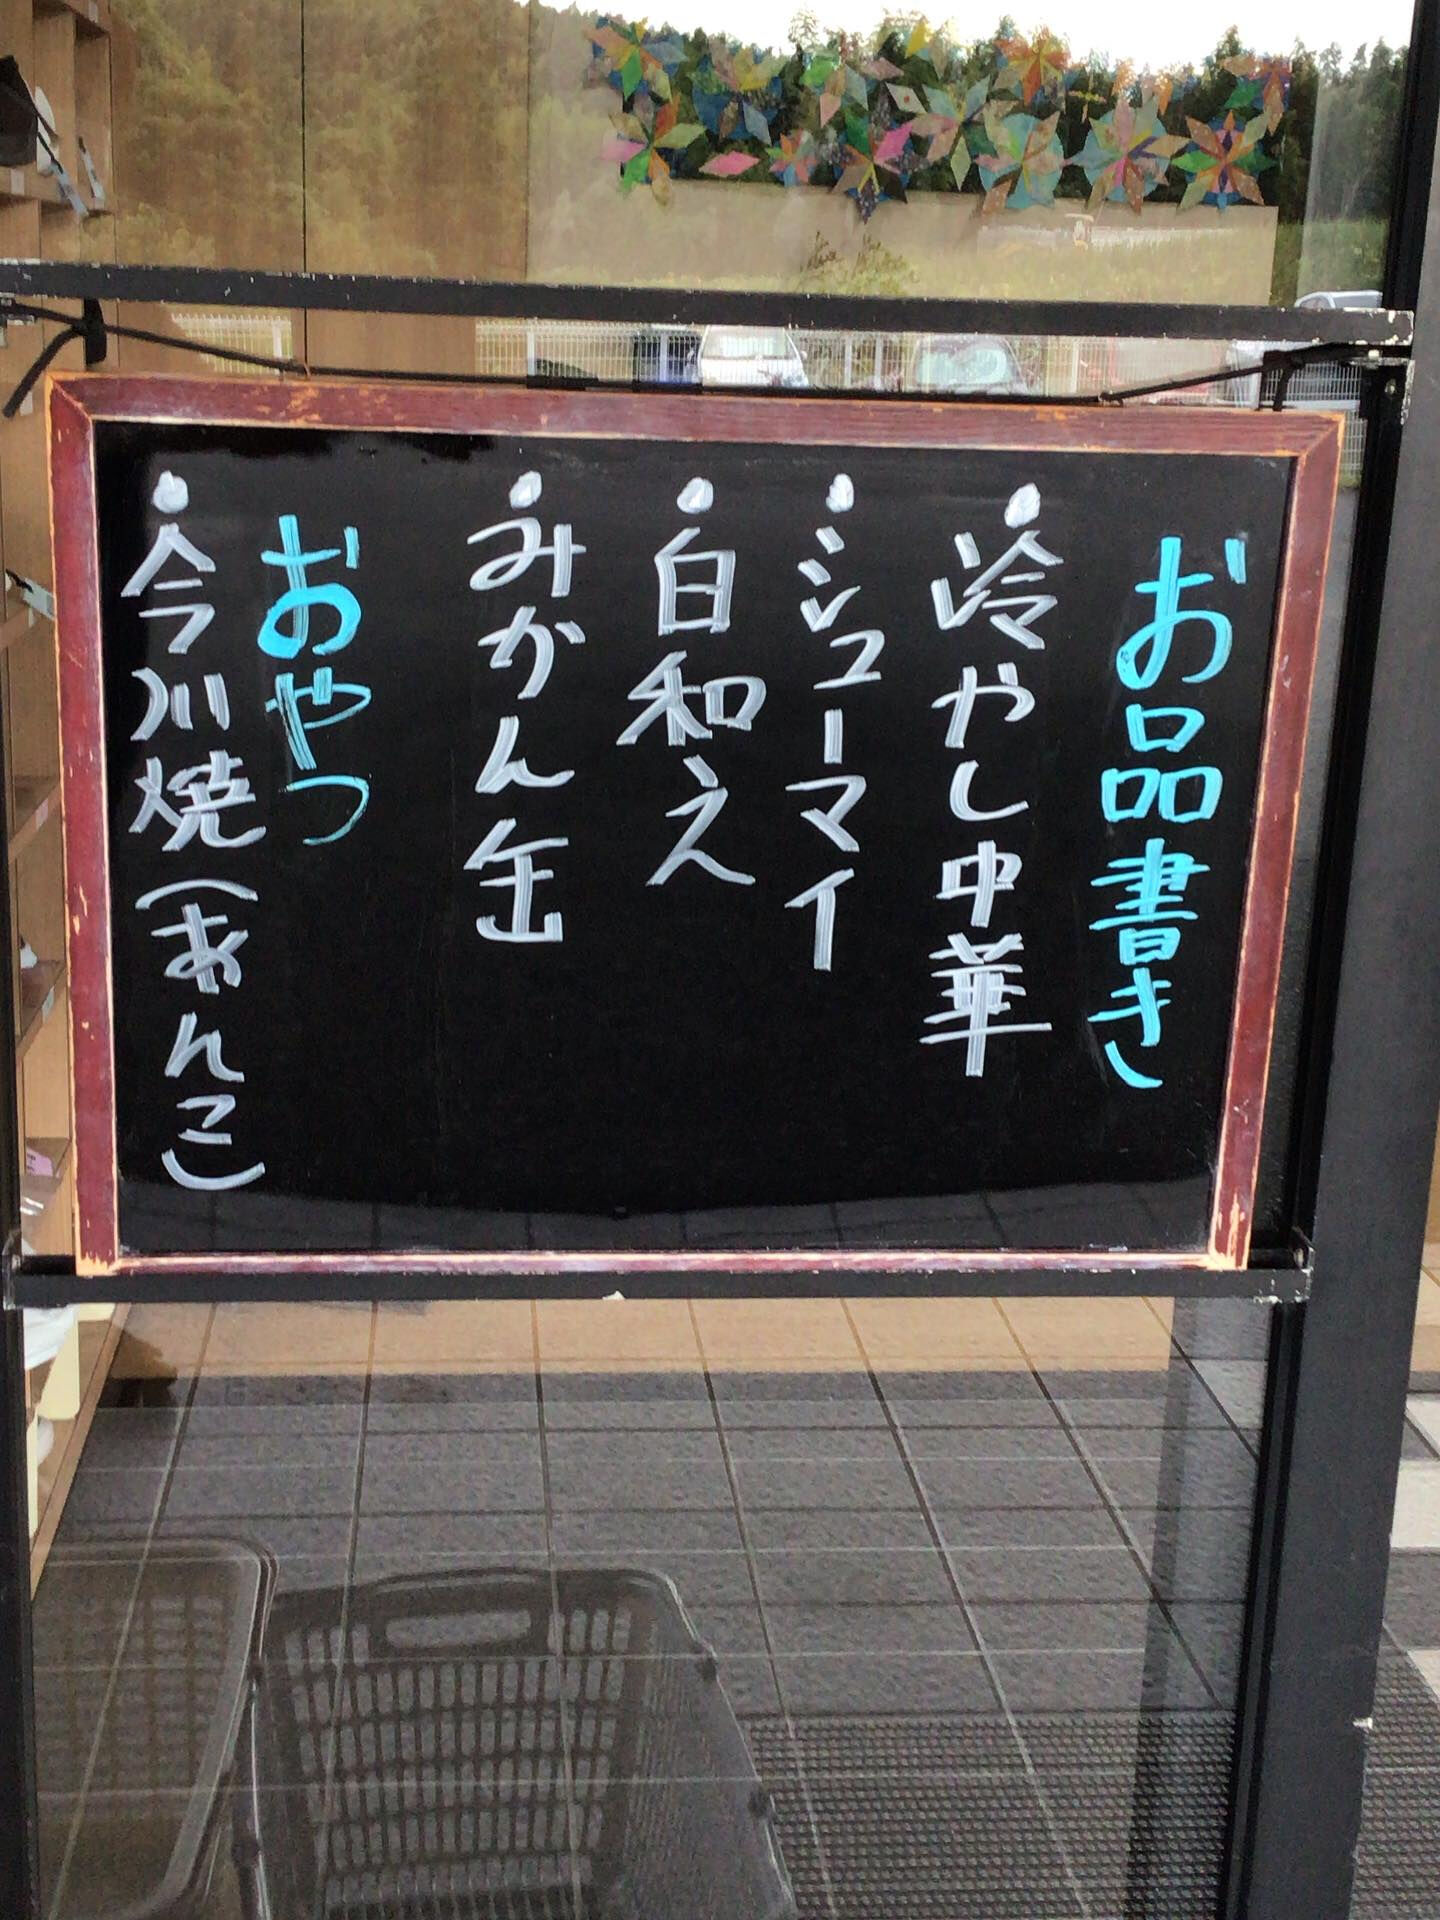 お品書き
・冷やし中華
・シューマイ
・白和え
・みかん缶
おやつ
・今川焼(あんこ)